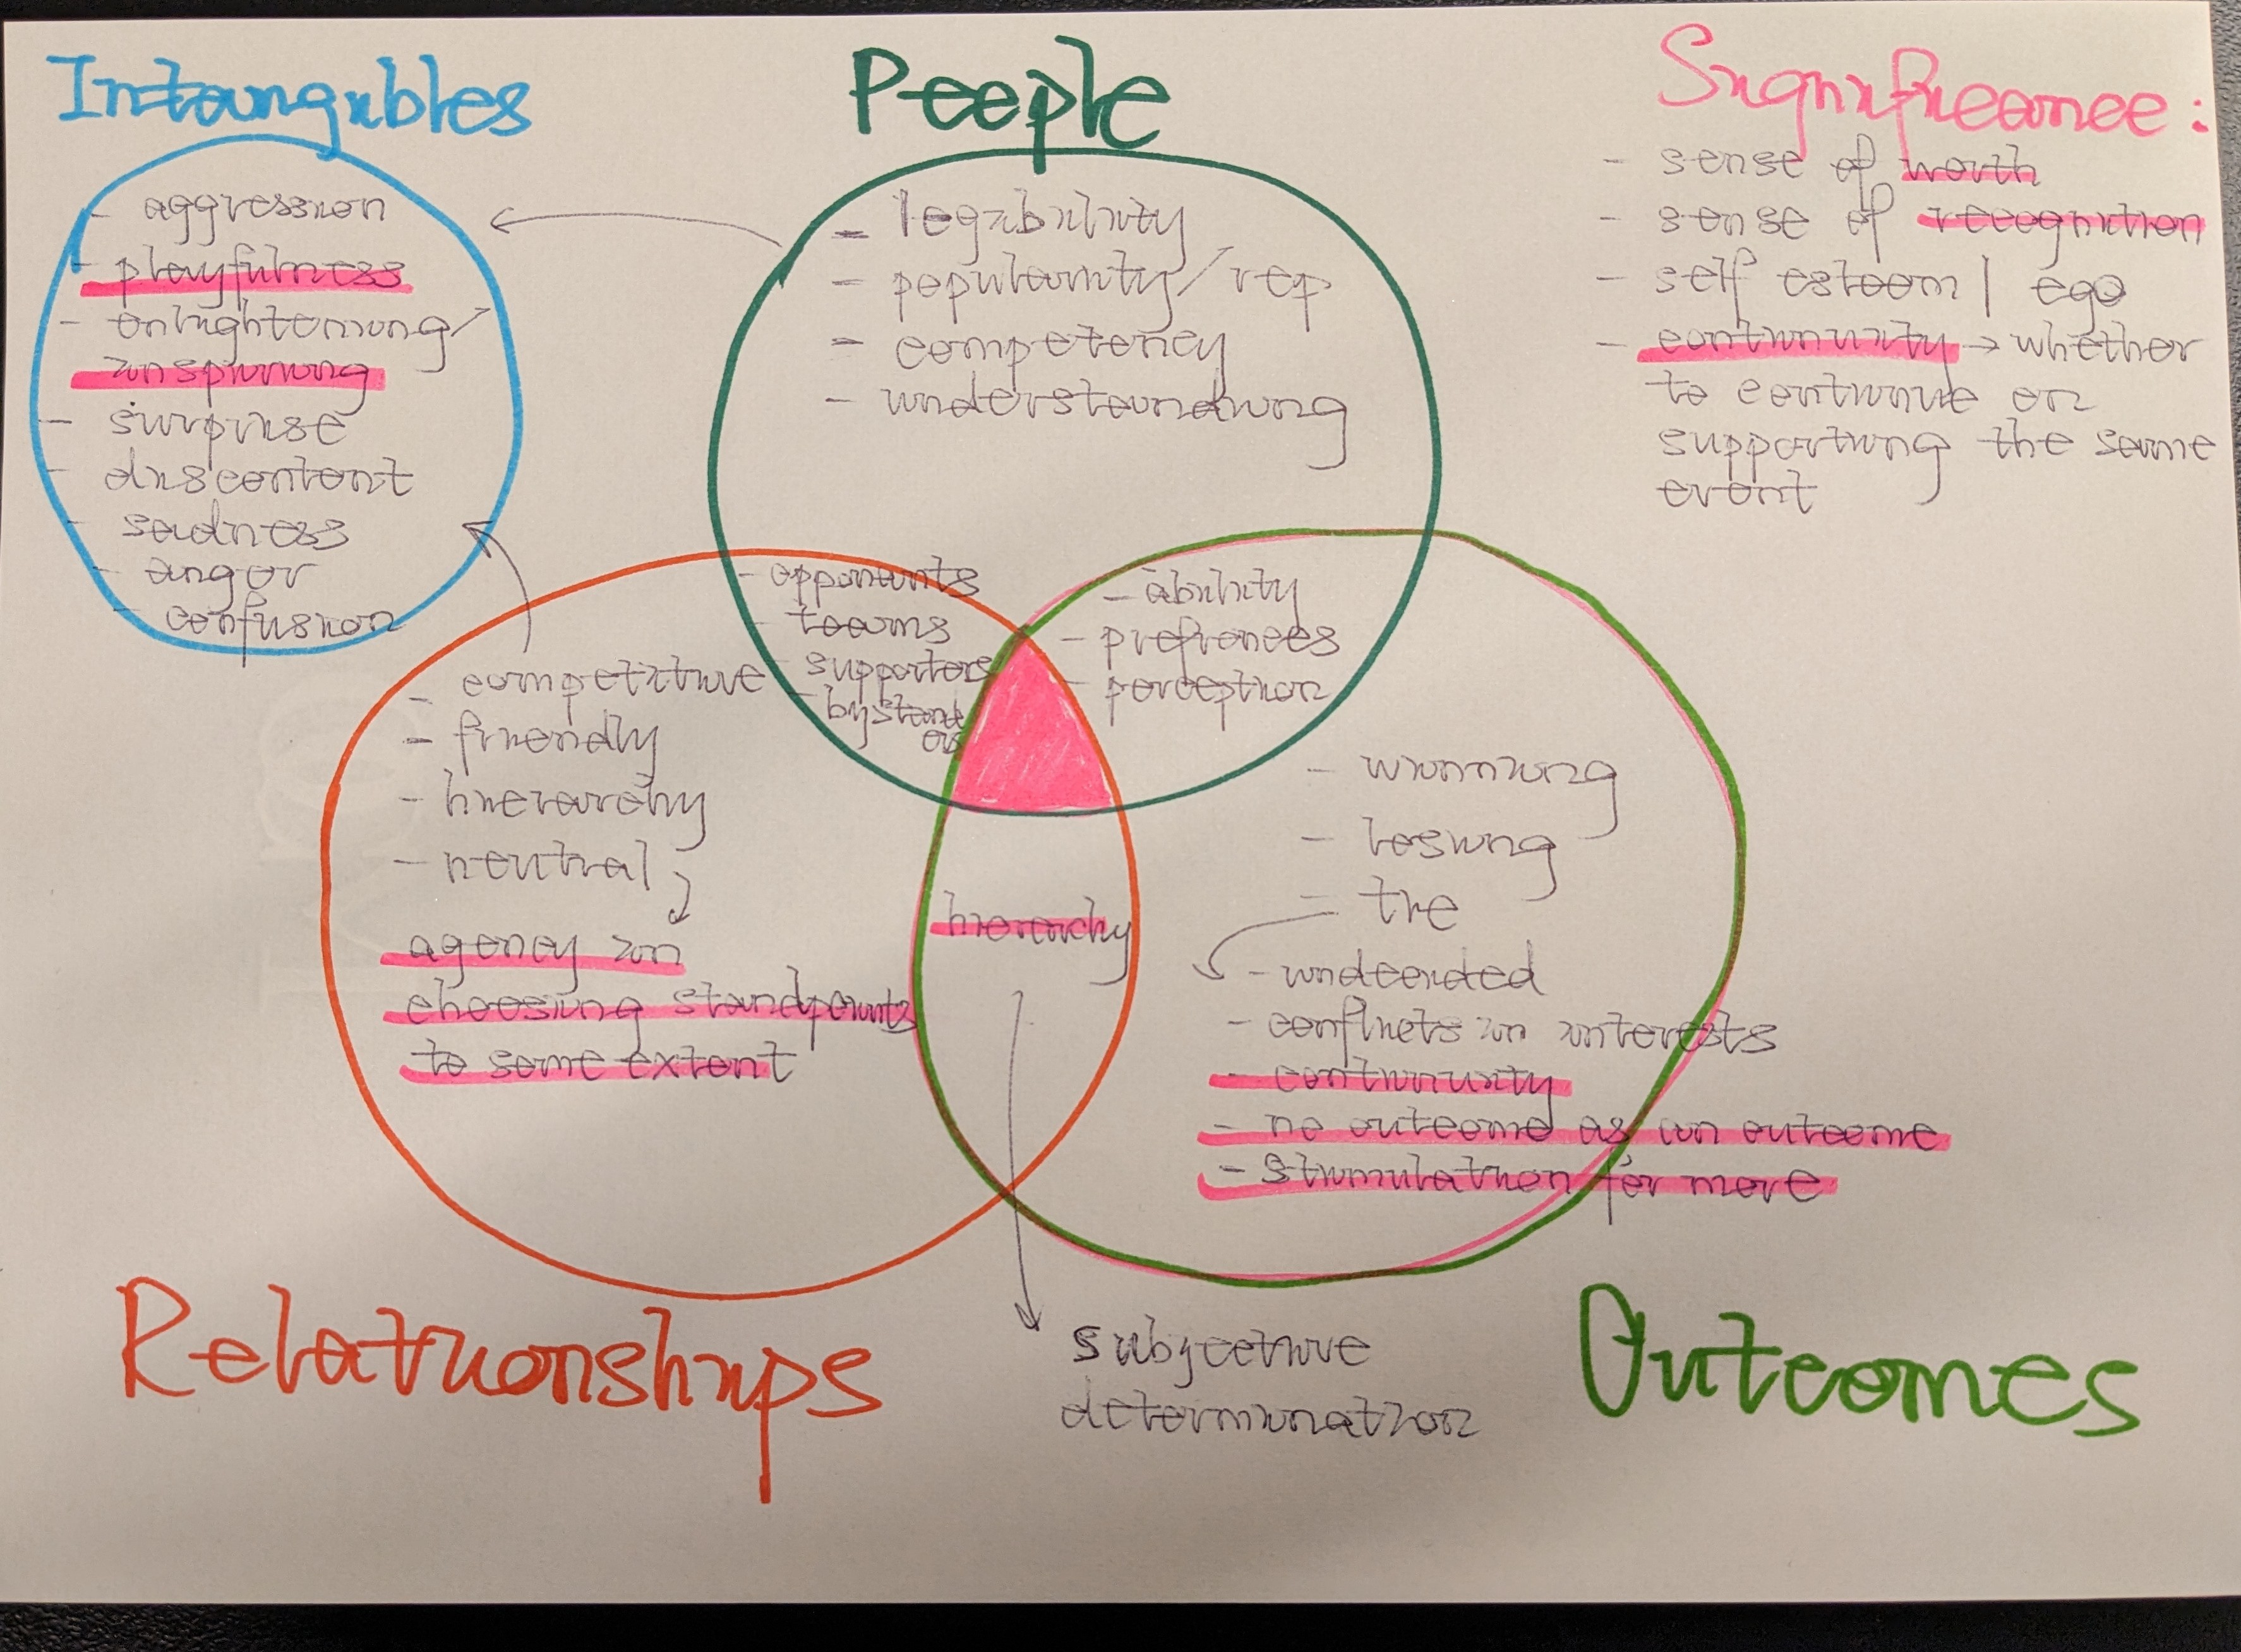 Intangibles
- aggression
- playfulness
- enlightening/
inspiring
- surprise
- discontent
- sadness
- anger
- confusion
People
- legibility
- popularity/rep
- competency
- understanding
Significance:
- sense of worth
- sense of recognition
- self esteem | ego
- continuity → whether
to continue or
supporting the same
event
- opponents
- teams
- supporters
- bystand
ers
- ability
- prefrences
- perception
- competitive
- friendly
- hierarchy
- neutral
agency in
choosing standpoints
to some extent
hierarchy
- winning
- losing
- tie
- undecided
- conflicts in interests
- continuity
- no outcome as an outcome
- stimulation for more
Relationships
subjective
determination
Outcomes